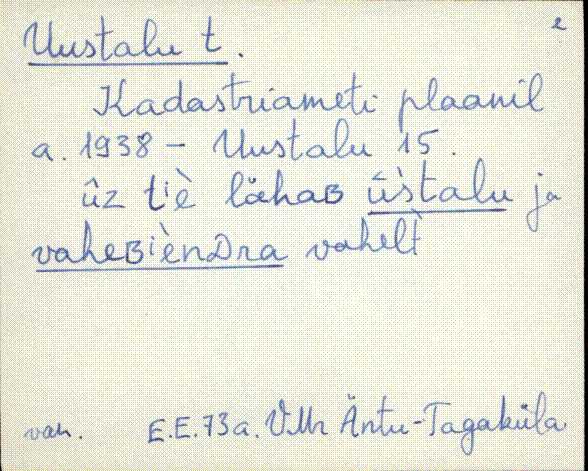 2
Uustalu t.
Kadastriameti plaanil
a. 1938 - Uustalu 15.
ûz tiè lähaʙ ū̀stalu ja
vaheʙiènᴅra vahelt
van. E.E. 73a. VMr Äntu-Tagaküla